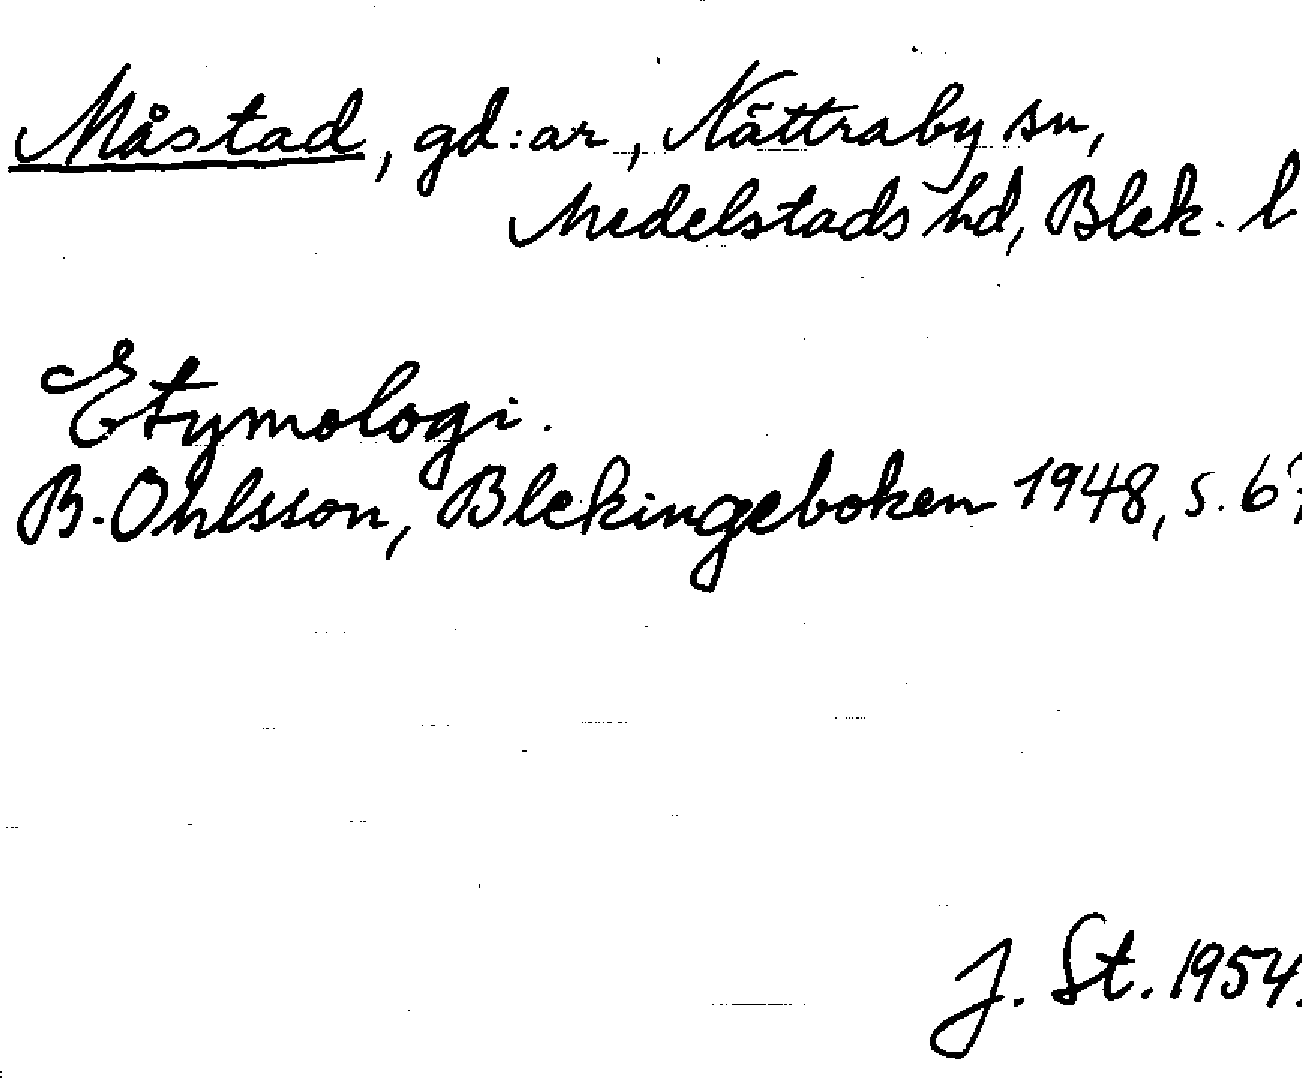 Måstad, gd:ar, Nättraby sn,
Medelstads hd, Blek. l
Etymologi.
B. Ohlsson, Blekingeboken 1948, s.
J. St. 1954.